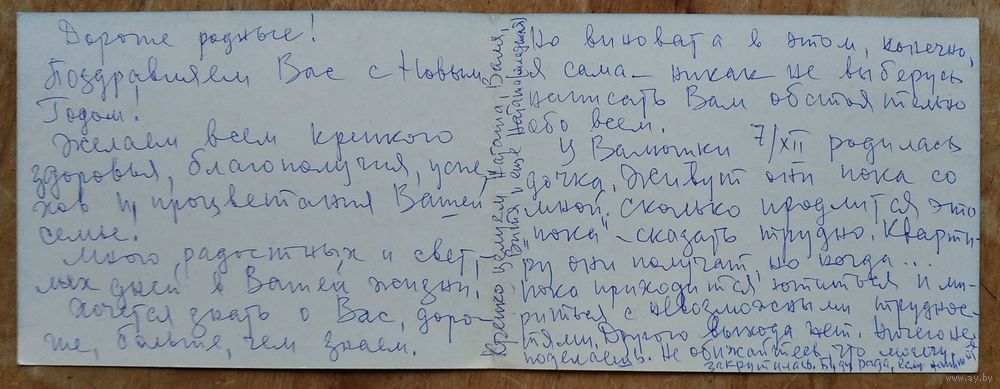 Дорогие родные!
Поздравляем Вас с Новым
Годом!
Желаем всем крепкого
здоровья, благополучия, успе-
хов и процветания Вашей
семье!
Много радостных и свет-
лых дней в Вашей жизни.
Хочется знать о Вас, доро-
гие, больше, чем знаем.
Крепко целуем Наташа Валя,
Витя и еще Наташа (младшая)
Но виновата в этом, конечно,
я сама – никак не выберусь
написать Вам обстоятельно
обо всем.
У Валюшки 7/XII родилась
дочка. Живут они пока со
мной. Сколько продлится это
"пока" – сказать трудно. Кварти-
ру они получат, но когда...
Пока приходится ютиться и ми-
риться с всевозможными труднос-
тями. Другого выхода нет. Ничего не
поделаешь. Не обижайтесь, что молчу,
закрутилась. Буду рада, если
www.ay.by